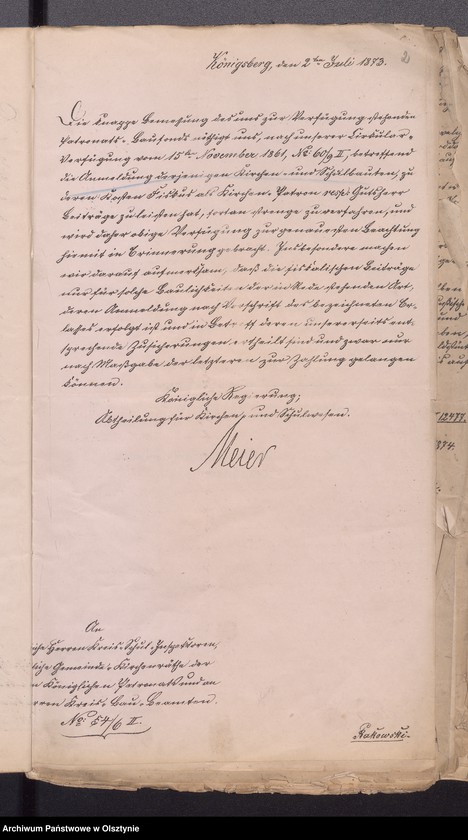 2
Königsberg, den 2ten Juli 1873.
Die knappe Bemessung des uns zur Verfügung stehenden
Patronats-Baufonds nöthigt uns, nach unserer Cirkular-
Verfügung vom 15ten November 1861, No: 60/9 II, betreffend
die Anmeldung derjenigen Kirchen- und Schulbauten, zu
deren Kosten Fiskus als Kirchen-Patron resp: Gutsherr
Beiträge zu leisten hat, fortan strenge zu verfahren, und
wird daher obige Verfügung zur genauesten Beachtung
hiermit in Erinnerung gebracht. Insbesondere machen
wir darauf aufmerksam, daß die fiskalischen Beiträge
nur für solche Baulichkeiten der in Rede stehenden Art,
deren Anmeldung nach Vorschrift des bezeichneten Er-
lasses erfolgt ist und in Betreff deren unsererseits ent-
sprechende Zusicherungen ertheilt sind und zwar nur
nach Maßgabe der letzteren zur Zahlung gelangen
können.
Königliche Regierung;
Abtheilung für Kirchen- und Schulwesen.
Meier
An
Herren Kreis-Schul-Inspektoren,
Gemeinde-Kirchenräthe der
Königlichen Patronats und an
Kreis-Bau-Beamten.
No: 54/6 II.
Rakowski.
12477.
1874.
Archiwum Państwowe w Olsztynie